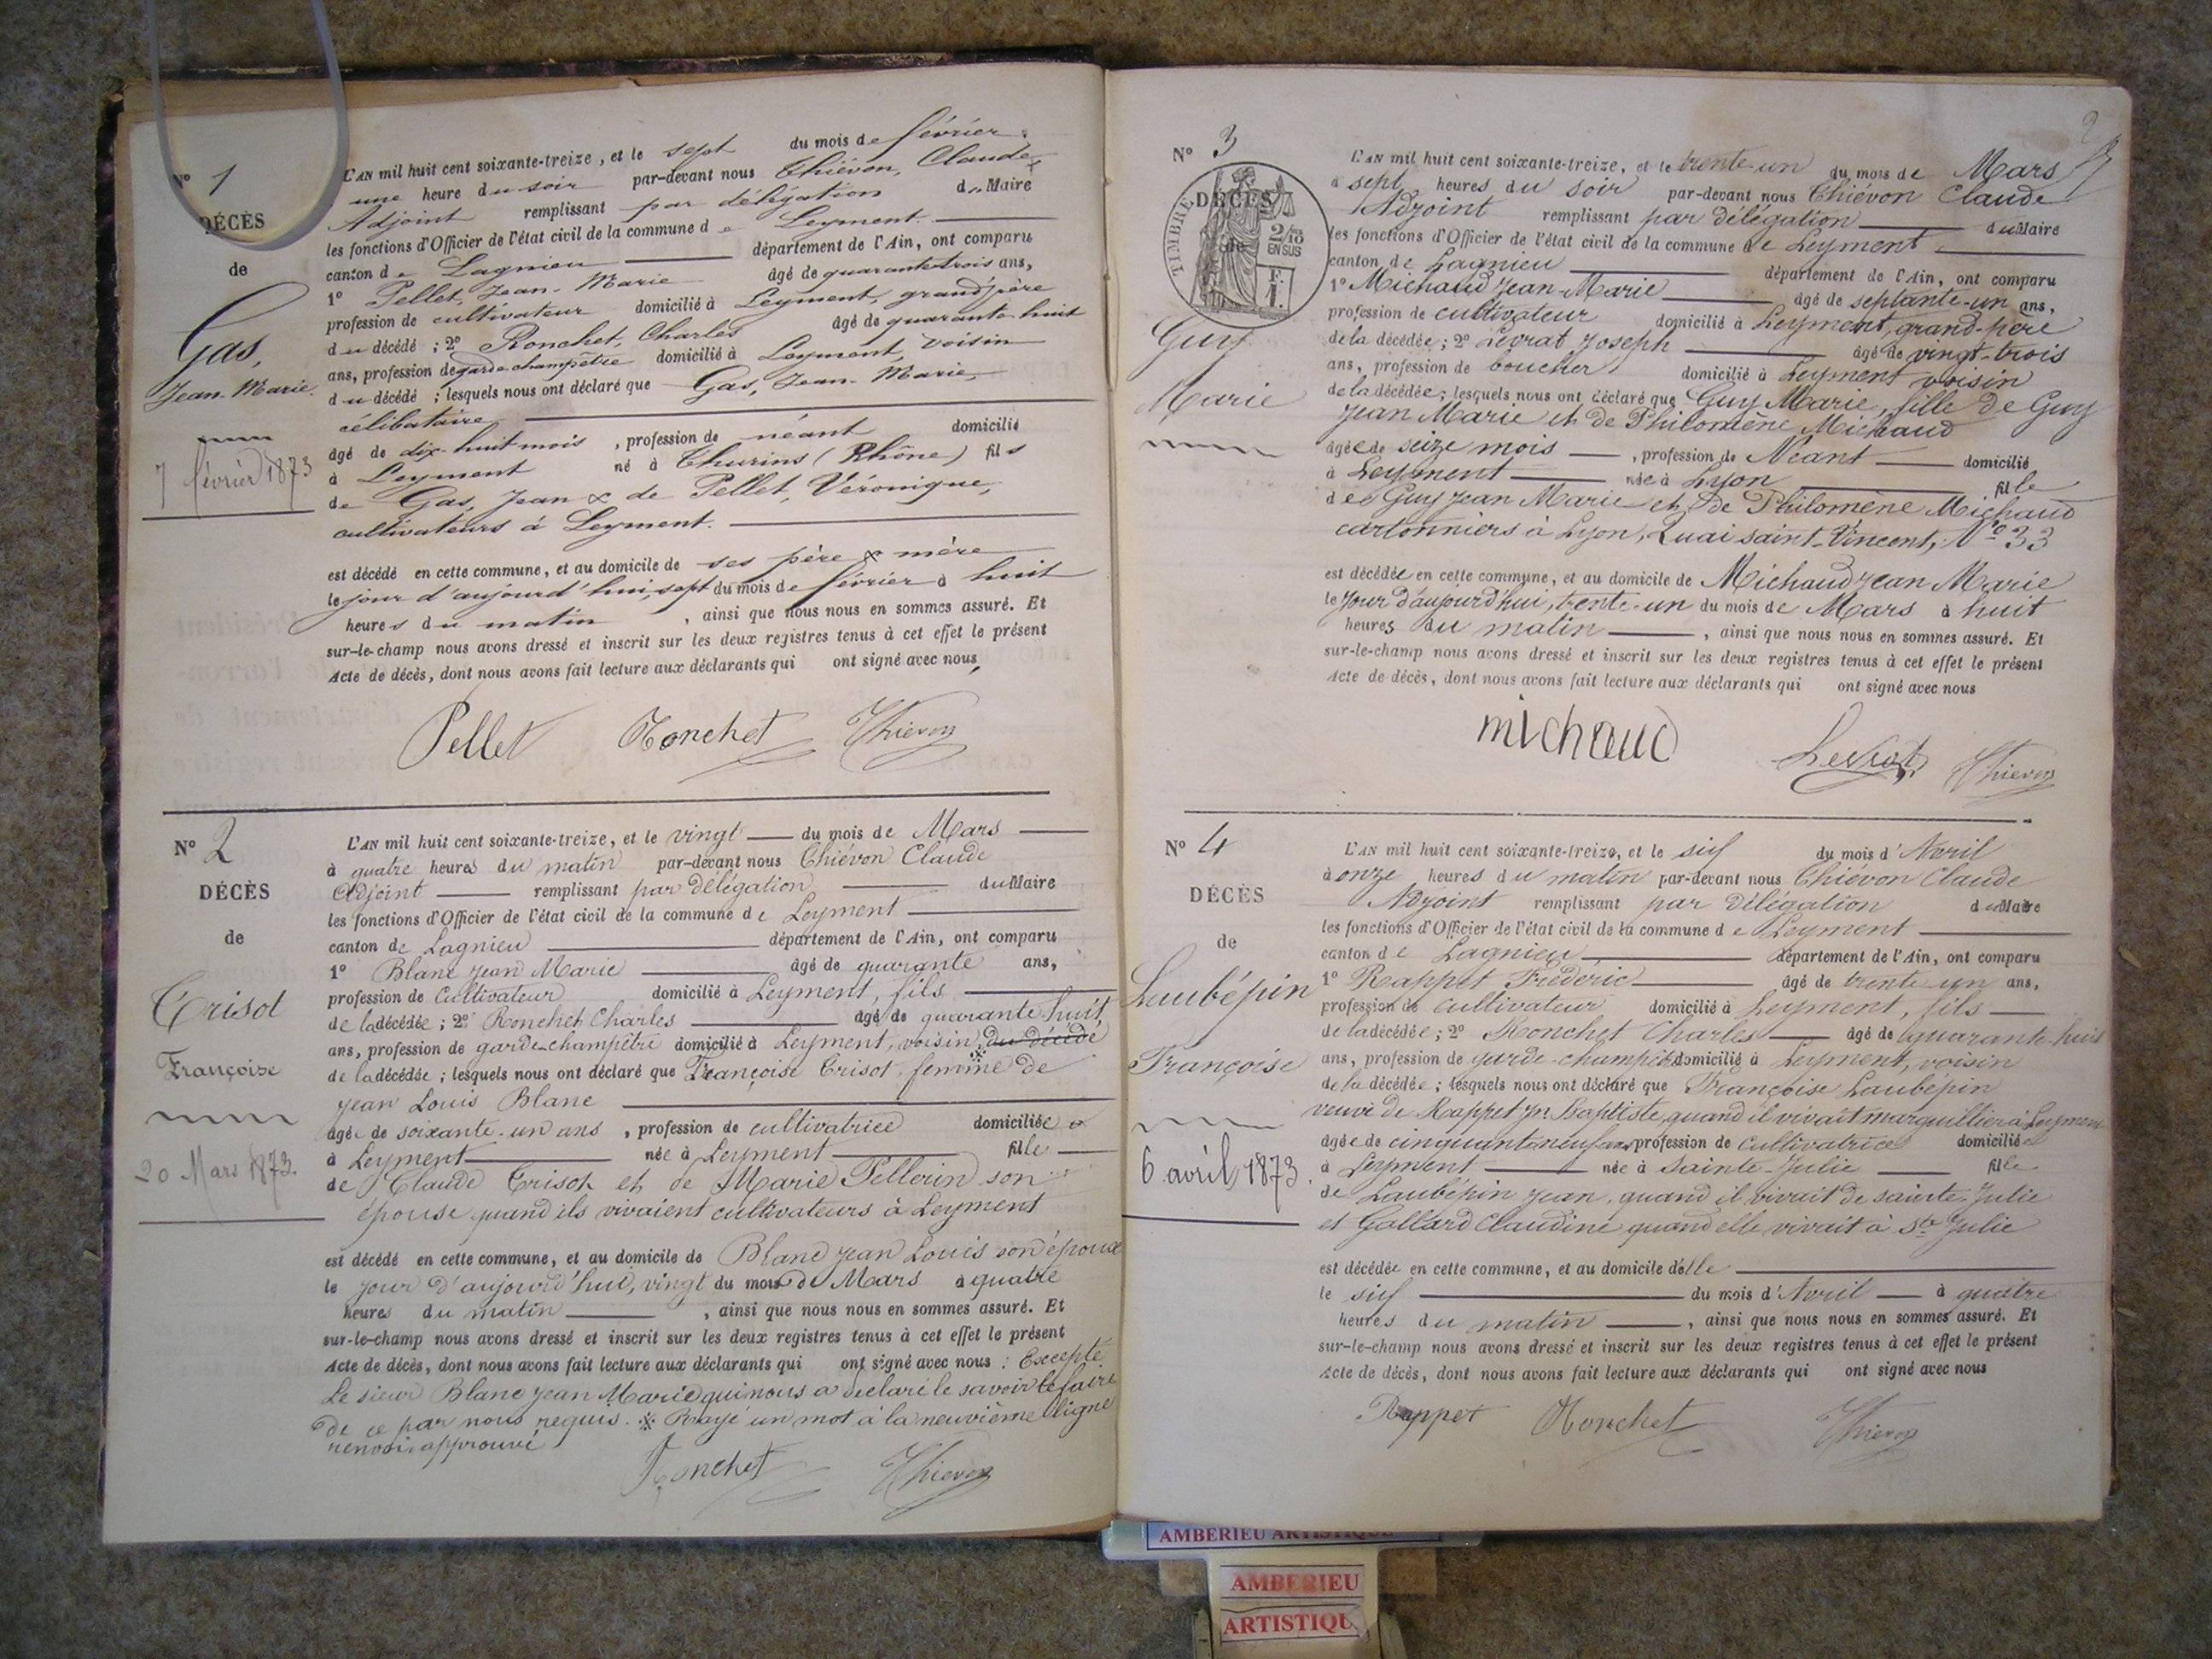 N° 1
DÉCÈS
de
Gas,
Jean-Marie.
7 février 1873
L'AN mil huit cent soixante-treize, et le sept du mois de février,
une heure du soir par-devant nous Thiévon, Claude,
Adjoint remplissant par délégation du Maire
les fonctions d'Officier de l'état civil de la commune de Leyment.
canton de Lagnieu département de l'Ain, ont comparu
1° Pellet, Jean-Marie âgé de quarante trois ans,
profession de cultivateur domicilié à Leyment, grand'père
du décédé ; 2° Ronchet, Charles âgé de quarante-huit
ans, profession de garde champêtre domicilié à Leyment, voisin
du décédé ; lesquels nous ont déclaré que Gas, Jean-Marie,
célibataire
âgé de dix-huit mois, profession de néant domicilié
à Leyment né à Thurins (Rhône) fils
de Gas, Jean & de Pellet, Véronique,
cultivateurs à Leyment.
est décédé en cette commune, et au domicile de ses père & mère
le jour d'aujourd'hui, sept du mois de février à huit
heures du matin, ainsi que nous nous en sommes assuré. Et
sur-le-champ nous avons dressé et inscrit sur les deux registres tenus à cet effet le présent
Acte de décès, dont nous avons fait lecture aux déclarants qui ont signé avec nous,
Pellet Ronchet Thievon
N° 2
DÉCÈS
de
Trisot
Françoise
20 Mars 1873.
L'AN mil huit cent soixante-treize, et le vingt du mois de Mars
à quatre heures du matin par-devant nous Thiévon Claude
Adjoint remplissant par délégation du Maire
les fonctions d'Officier de l'état civil de la commune de Leyment
canton de Lagnieu département de l'Ain, ont comparu
1° Blanc Jean Marie âgé de quarante ans,
profession de Cultivateur domicilié à Leyment, fils
de la décédée ; 2° Ronchet Charles âgé de quarante-huit
ans, profession de garde-champêtre domicilié à Leyment, voisin ※ du décédé
de la décédée ; lesquels nous ont déclaré que Françoise Trisot, femme de
Jean Louis Blanc
âgée de soixante-un ans, profession de cultivatrice domiciliée
à Leyment née à Leyment fille
de Claude Trisot et de Marie Pellerin son
épouse quand ils vivaient cultivateurs à Leyment
est décédé en cette commune, et au domicile de Blanc Jean Louis son époux
le jour d'aujourd'hui, vingt du mois de Mars à quatre
heures du matin, ainsi que nous nous en sommes assuré. Et
sur-le-champ nous avons dressé et inscrit sur les deux registres tenus à cet effet le présent
Acte de décès, dont nous avons fait lecture aux déclarants qui ont signé avec nous : Excepté
Le sieur Blanc Jean Marie qui nous a déclaré le savoir le faire
de ce par nous requis. ※ Rayé un mot à la neuvième ligne
renvoi approuvé
Ronchet Thievon
2
N° 3
DÉCÈS
de
TIMBRE
2/10 EN SUS
Guy
Marie
L'AN mil huit cent soixante-treize, et le trente-un du mois de Mars
à sept heures du soir par-devant nous Thiévon Claude
Adjoint remplissant par délégation du Maire
les fonctions d'Officier de l'état civil de la commune de Leyment
canton de Lagnieu département de l'Ain, ont comparu
1° Michaud Jean-Marie âgé de septante-un ans,
profession de cultivateur domicilié à Leyment, grand-père
de la décédée ; 2° Levrat Joseph âgé de vingt-trois
ans, profession de boucher domicilié à Leyment voisin
de la décédée ; lesquels nous ont déclaré que Guy Marie, fille de Guy
Jean Marie et de Philomène Michaud
âgée de seize mois, profession de Néant domicilié
à Leyment née à Lyon fille
de Guy Jean Marie et de Philomène Michaud
cartonniers à Lyon, Quai saint-Vincent, N° 33
est décédée en cette commune, et au domicile de Michaud Jean Marie
le Jour d'aujourd'hui, trente-un du mois de Mars à huit
heures du matin, ainsi que nous nous en sommes assuré. Et
sur-le-champ nous avons dressé et inscrit sur les deux registres tenus à cet effet le présent
Acte de décès, dont nous avons fait lecture aux déclarants qui ont signé avec nous
michaud Levrat Thievon
N° 4
DÉCÈS
de
Laubépin
Françoise
6 avril 1873.
L'AN mil huit cent soixante-treize, et le six du mois d'Avril
à onze heures du matin par-devant nous Thiévon Claude
Adjoint remplissant par délégation du Maire
les fonctions d'Officier de l'état civil de la commune de Leyment
canton de Lagnieu département de l'Ain, ont comparu
1° Rappet Fréderic âgé de trente-un ans,
profession de cultivateur domicilié à Leyment, fils
de la décédée ; 2° Ronchet Charles âgé de quarante-huit
ans, profession de garde-champêtre domicilié à Leyment, voisin
de la décédée ; lesquels nous ont déclaré que Françoise Laubépin
veuve de Rappet Jn Baptiste, quand il vivait marguillier à Leyment
âgée de cinquante neuf ans profession de cultivatrice domiciliée
à Leyment née à Sainte-Julie fille
de Laubépin Jean, quand il vivait de sainte Julie
et Gallard Claudine quand elle vivait à Ste Julie
est décédée en cette commune, et au domicile d'elle
le six du mois d'Avril à quatre
heures du matin, ainsi que nous nous en sommes assuré. Et
sur-le-champ nous avons dressé et inscrit sur les deux registres tenus à cet effet le présent
Acte de décès, dont nous avons fait lecture aux déclarants qui ont signé avec nous
Rappet Ronchet Thievon
AMBERIEU ARTISTIQUE
AMBERIEU
ARTISTIQU